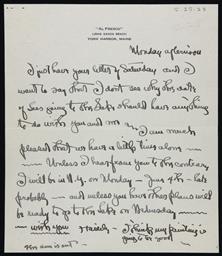 5-23-23
"AL FRESCO"
LONG SANDS BEACH
YORK HARBOR, MAINE
Monday afternoon
I just have your letter of Saturday and I
want to say that I don't see why the date
of going to the should have anything
to do with you and me — I am much
pleased that we have a little time alone —
Unless I hear from you to the contrary
I will be in N.Y. on Monday — June 4th – late
probably — and unless you have other plans will
be ready to go to the on Wednesday —
with you I think my painting is
going to be good